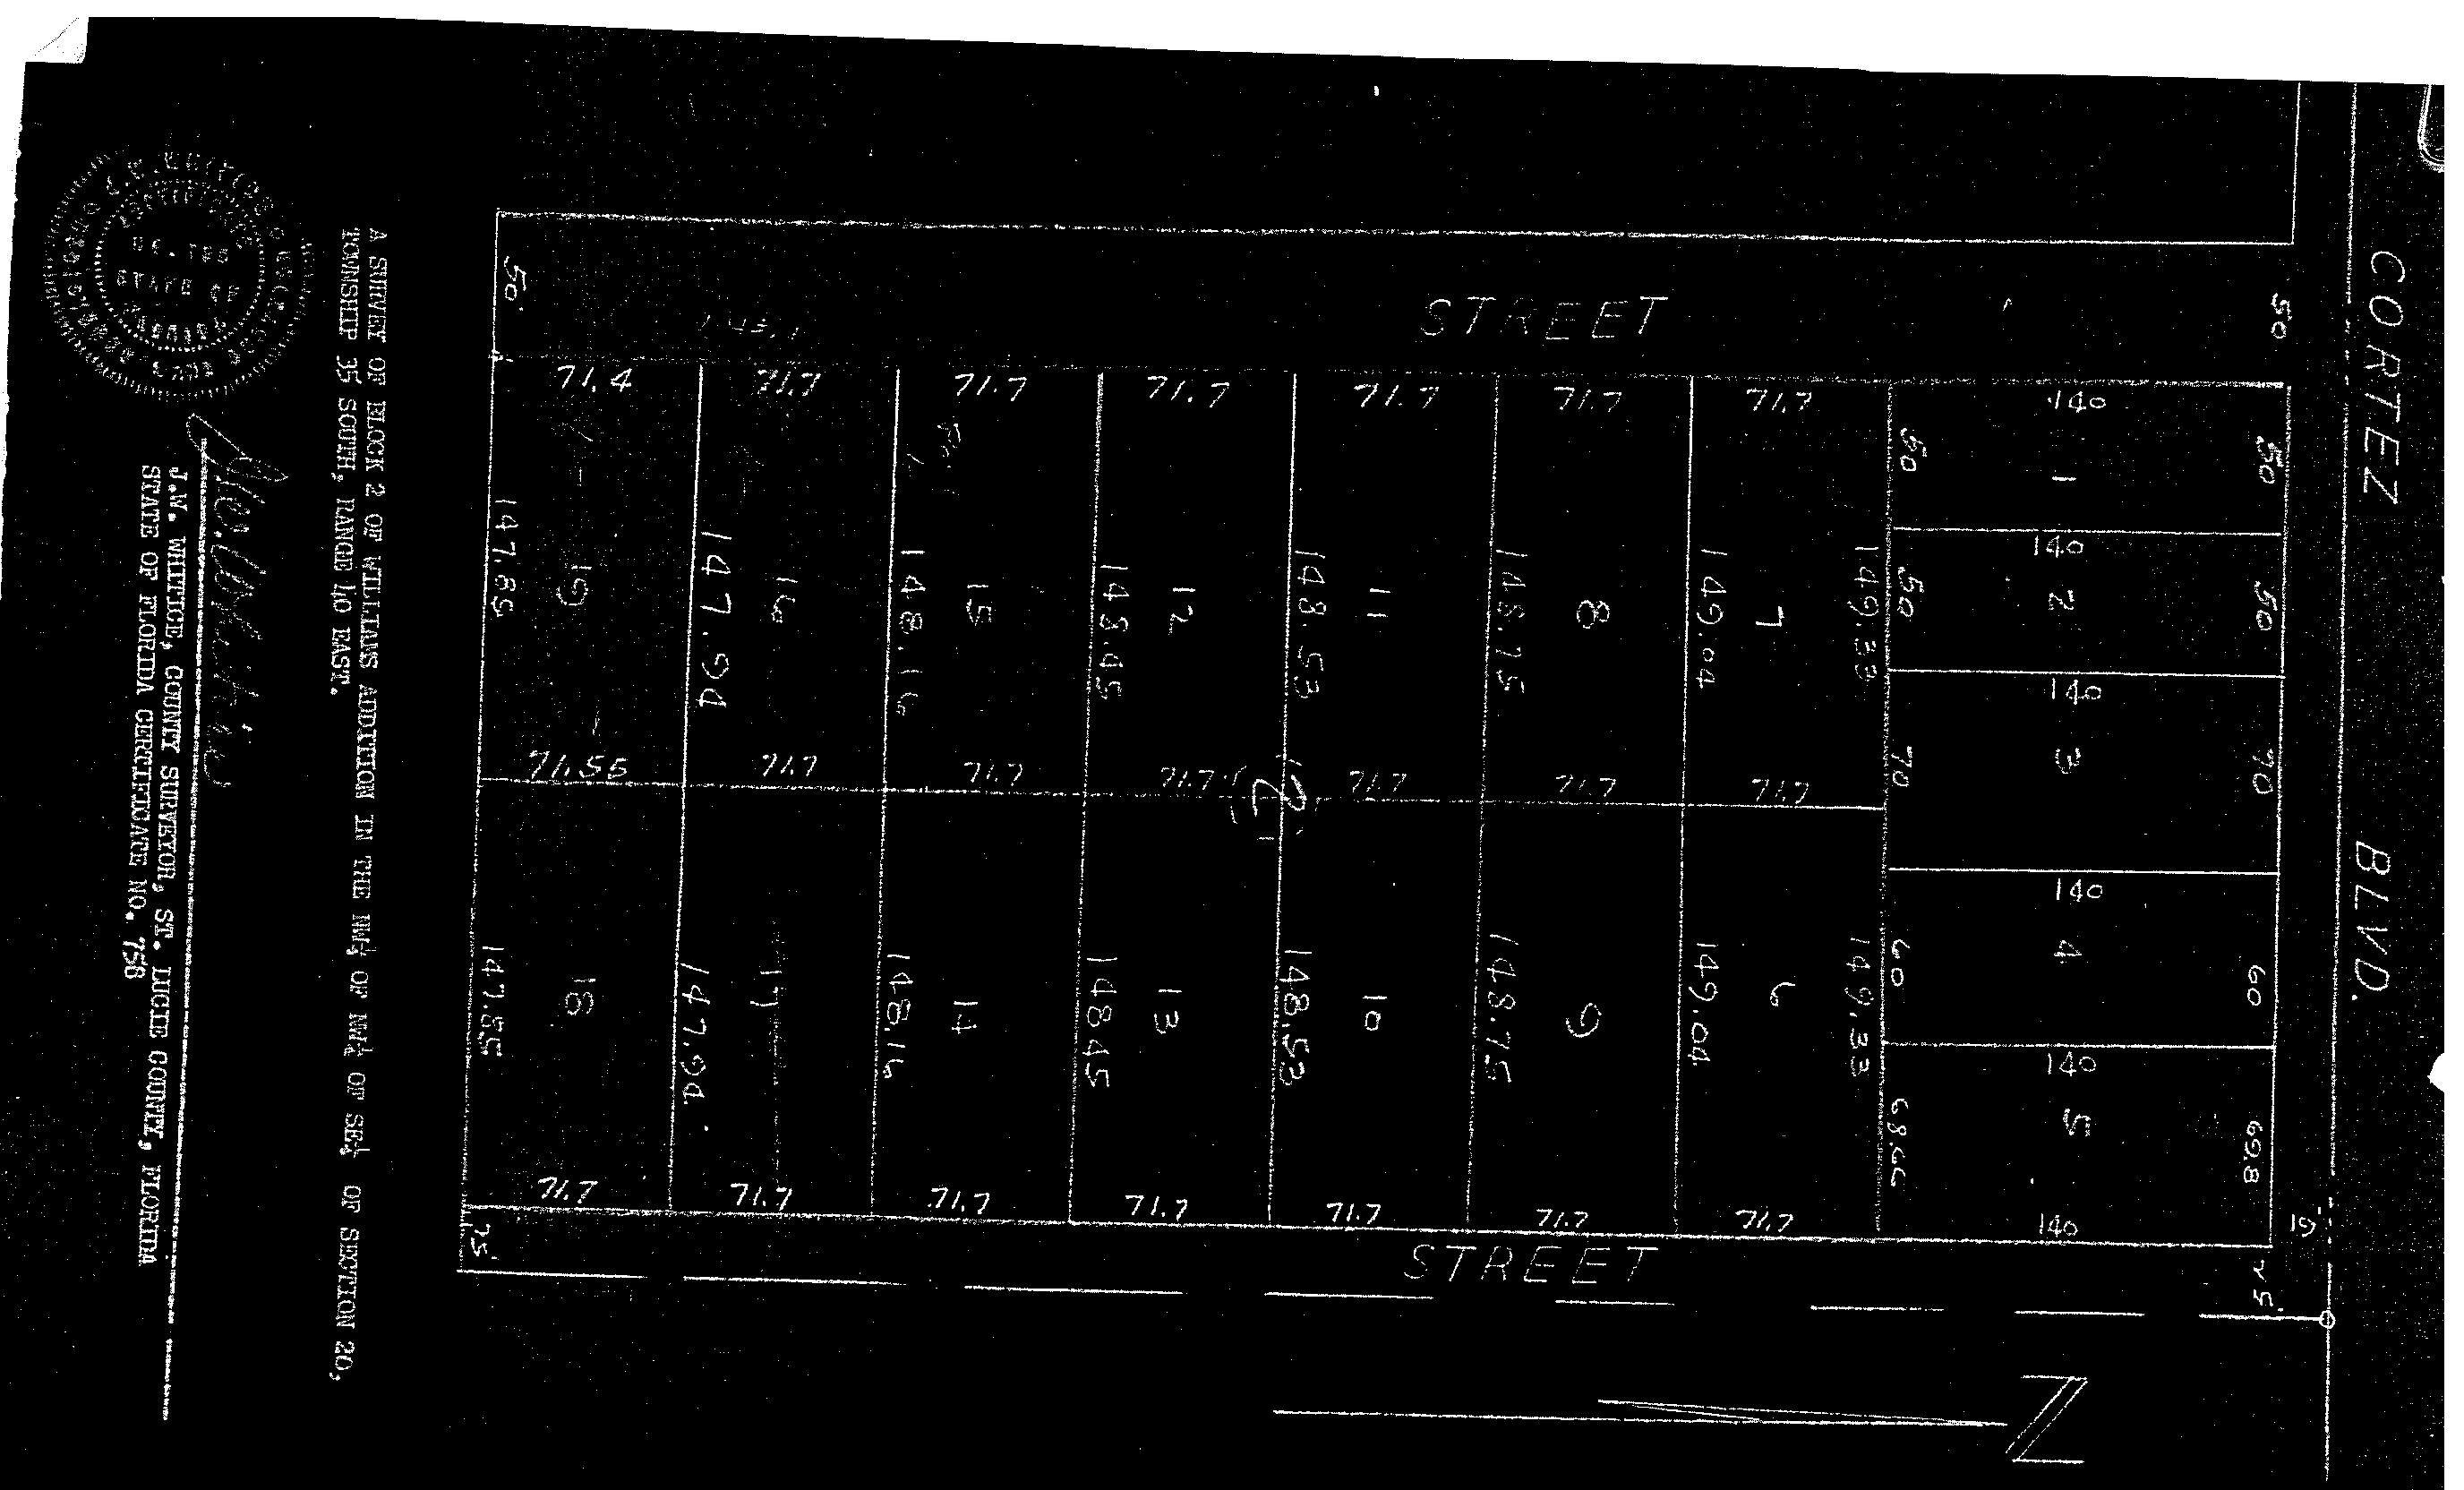 CORTEZ BLVD.
50
15'
25'
50
50
70
60
69.8
140
140
140
140
140
140
1
2
3
4
5
50
50
70
60
68.66
STREET
STREET
149.33
149.33
71.7
7
71.7
6
71.7
149.04
149.04
71.7
8
71.7
9
71.7
148.75
148.75
71.7
11
71.7
10
71.7
148.53
148.53
2
71.7
12
71.7
13
71.7
148.45
148.45
71.7
15
71.7
14
71.7
148.16
148.16
71.7
16
71.7
17
71.7
147.94
147.94
71.4
19
71.55
18
71.7
147.85
147.85
50'
25'
A SURVEY OF BLOCK 2 OF WILLIAMS ADDITION IN THE NW¼ OF NW¼ OF SE¼ OF SECTION 20,
TOWNSHIP 35 SOUTH, RANGE 40 EAST.
J.W. WHITICE, COUNTY SURVEYOR, ST. LUCIE COUNTY, FLORIDA
STATE OF FLORIDA CERTIFICATE NO. 758
STATE OF